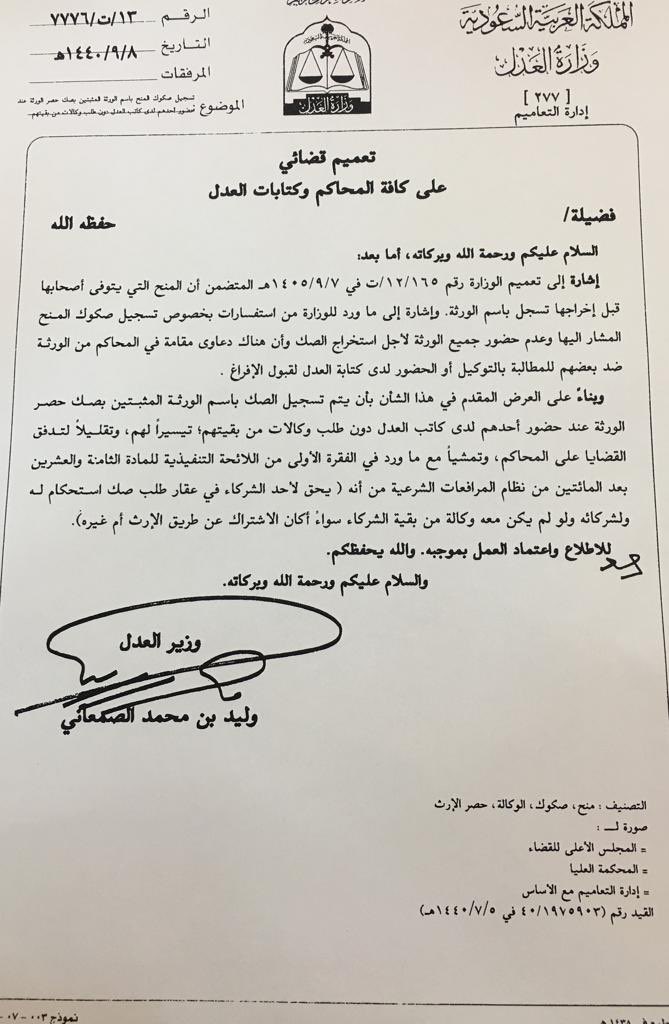 المملكة العربية السعودية
وزارة العدل
[ ٢٧٧ ]
إدارة التعاميم
وزارة العدل
الرقم ١٣/ت/٧٧٧٦
التاريخ ١٤٤٠/٩/٨هـ
المرفقات
الموضوع تسجيل صكوك المنح باسم الورثة المثبتين بصك حصر الورثة عند
حضور أحدهم لدى كاتب العدل دون طلب وكالات من بقيتهم.
تعميم قضائي
على كافة المحاكم وكتابات العدل
فضيلة/ حفظه الله
السلام عليكم ورحمة الله وبركاته، أما بعد:
إشارة إلى تعميم الوزارة رقم ١٢/١٦٥/ت في ١٤٠٥/٩/٧هـ المتضمن أن المنح التي يتوفى أصحابها
قبل إخراجها تسجل باسم الورثة. وإشارة إلى ما ورد للوزارة من استفسارات بخصوص تسجيل صكوك المنح
المشار اليها وعدم حضور جميع الورثة لأجل استخراج الصك وأن هناك دعاوى مقامة في المحاكم من الورثة
ضد بعضهم للمطالبة بالتوكيل أو الحضور لدى كتابة العدل لقبول الإفراغ .
وبناءً على العرض المقدم في هذا الشأن بأن يتم تسجيل الصك باسم الورثة المثبتين بصك حصر
الورثة عند حضور أحدهم لدى كاتب العدل دون طلب وكالات من بقيتهم؛ تيسيراً لهم، وتقليلاً لتدفق
القضايا على المحاكم، وتمشياً مع ما ورد في الفقرة الأولى من اللائحة التنفيذية للمادة الثامنة والعشرين
بعد المائتين من نظام المرافعات الشرعية من أنه ( يحق لأحد الشركاء في عقار طلب صك استحكام له
ولشركائه ولو لم يكن معه وكالة من بقية الشركاء سواءً أكان الاشتراك عن طريق الإرث أم غيره).
للاطلاع واعتماد العمل بموجبه. والله يحفظكم.
والسلام عليكم ورحمة الله وبركاته.
وزير العدل
وليد بن محمد الصمعاني
التصنيف : منح، صكوك، الوكالة، حصر الإرث
صورة لـــ :
= المجلس الأعلى للقضاء
= المحكمة العليا
= إدارة التعاميم مع الأساس
القيد رقم (٤٠/١٩٧٥٩٠٣ في ١٤٤٠/٧/٥هـ)
نموذج ٠٠٣-٠٧-